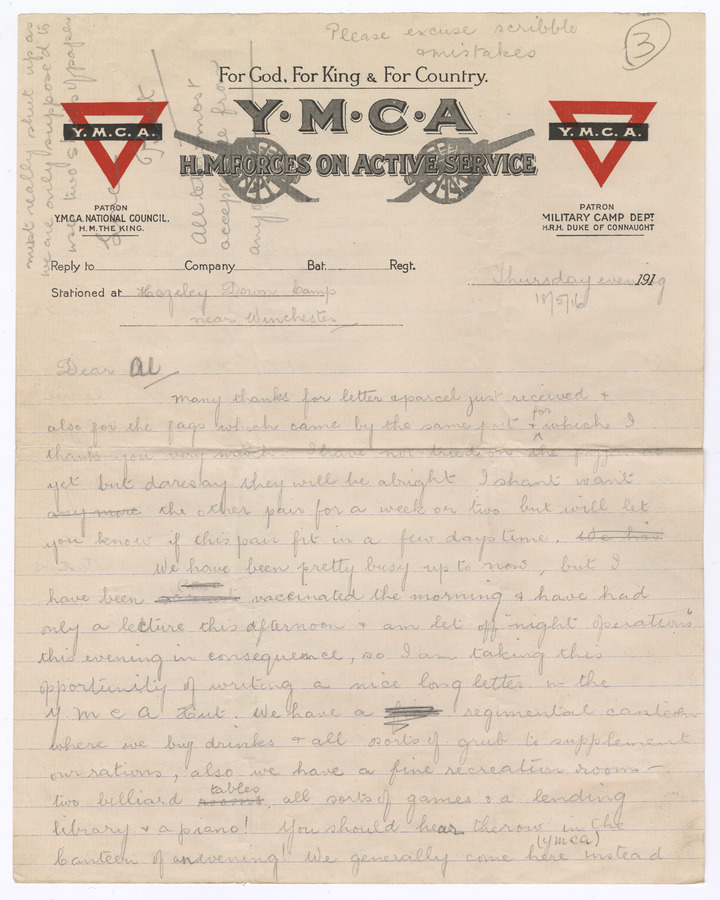 Please excuse scribble
& mistakes
3
For God, For King & For Country.
Y·M·C·A
H.M. FORCES ON ACTIVE SERVICE
Y.M.C.A.
PATRON
Y.M.C.A. NATIONAL COUNCIL.
H.M. THE KING.
Y.M.C.A.
PATRON
MILITARY CAMP DEPT
H.R.H. DUKE OF CONNAUGHT
must really shut up as
we are only supposed to
use two sheets of paper
All letters most
accept from
any
Reply to Company Bat. Regt.
Thursday evening 191
18/5/16
Stationed at Hazeley Down Camp
near Winchester
Dear Al
Many thanks for letter & parcel just received &
also for the fags which came by the same post & for which I
thank you very much. I have not tried on the pyjamas
yet but daresay they will be alright I shant want
any more the other pair for a week or two but will let
you know if this pair fit in a few days time. We have
We have been pretty busy up to now, but I
have been vaccinated the morning & have had
only a lecture this afternoon & am let off "night operations"
this evening in consequence, so I am taking this
opportunity of writing a nice long letter in the
Y M C A Hut. We have a regimental canteen
where we buy drinks & all sorts of grub to supplement
our rations, also we have a fine recreation room —
two billiard rooms tables, all sorts of games & a lending
library & a piano! You should hear the row in the
Canteen of an evening! We generally come here (YMCA) instead